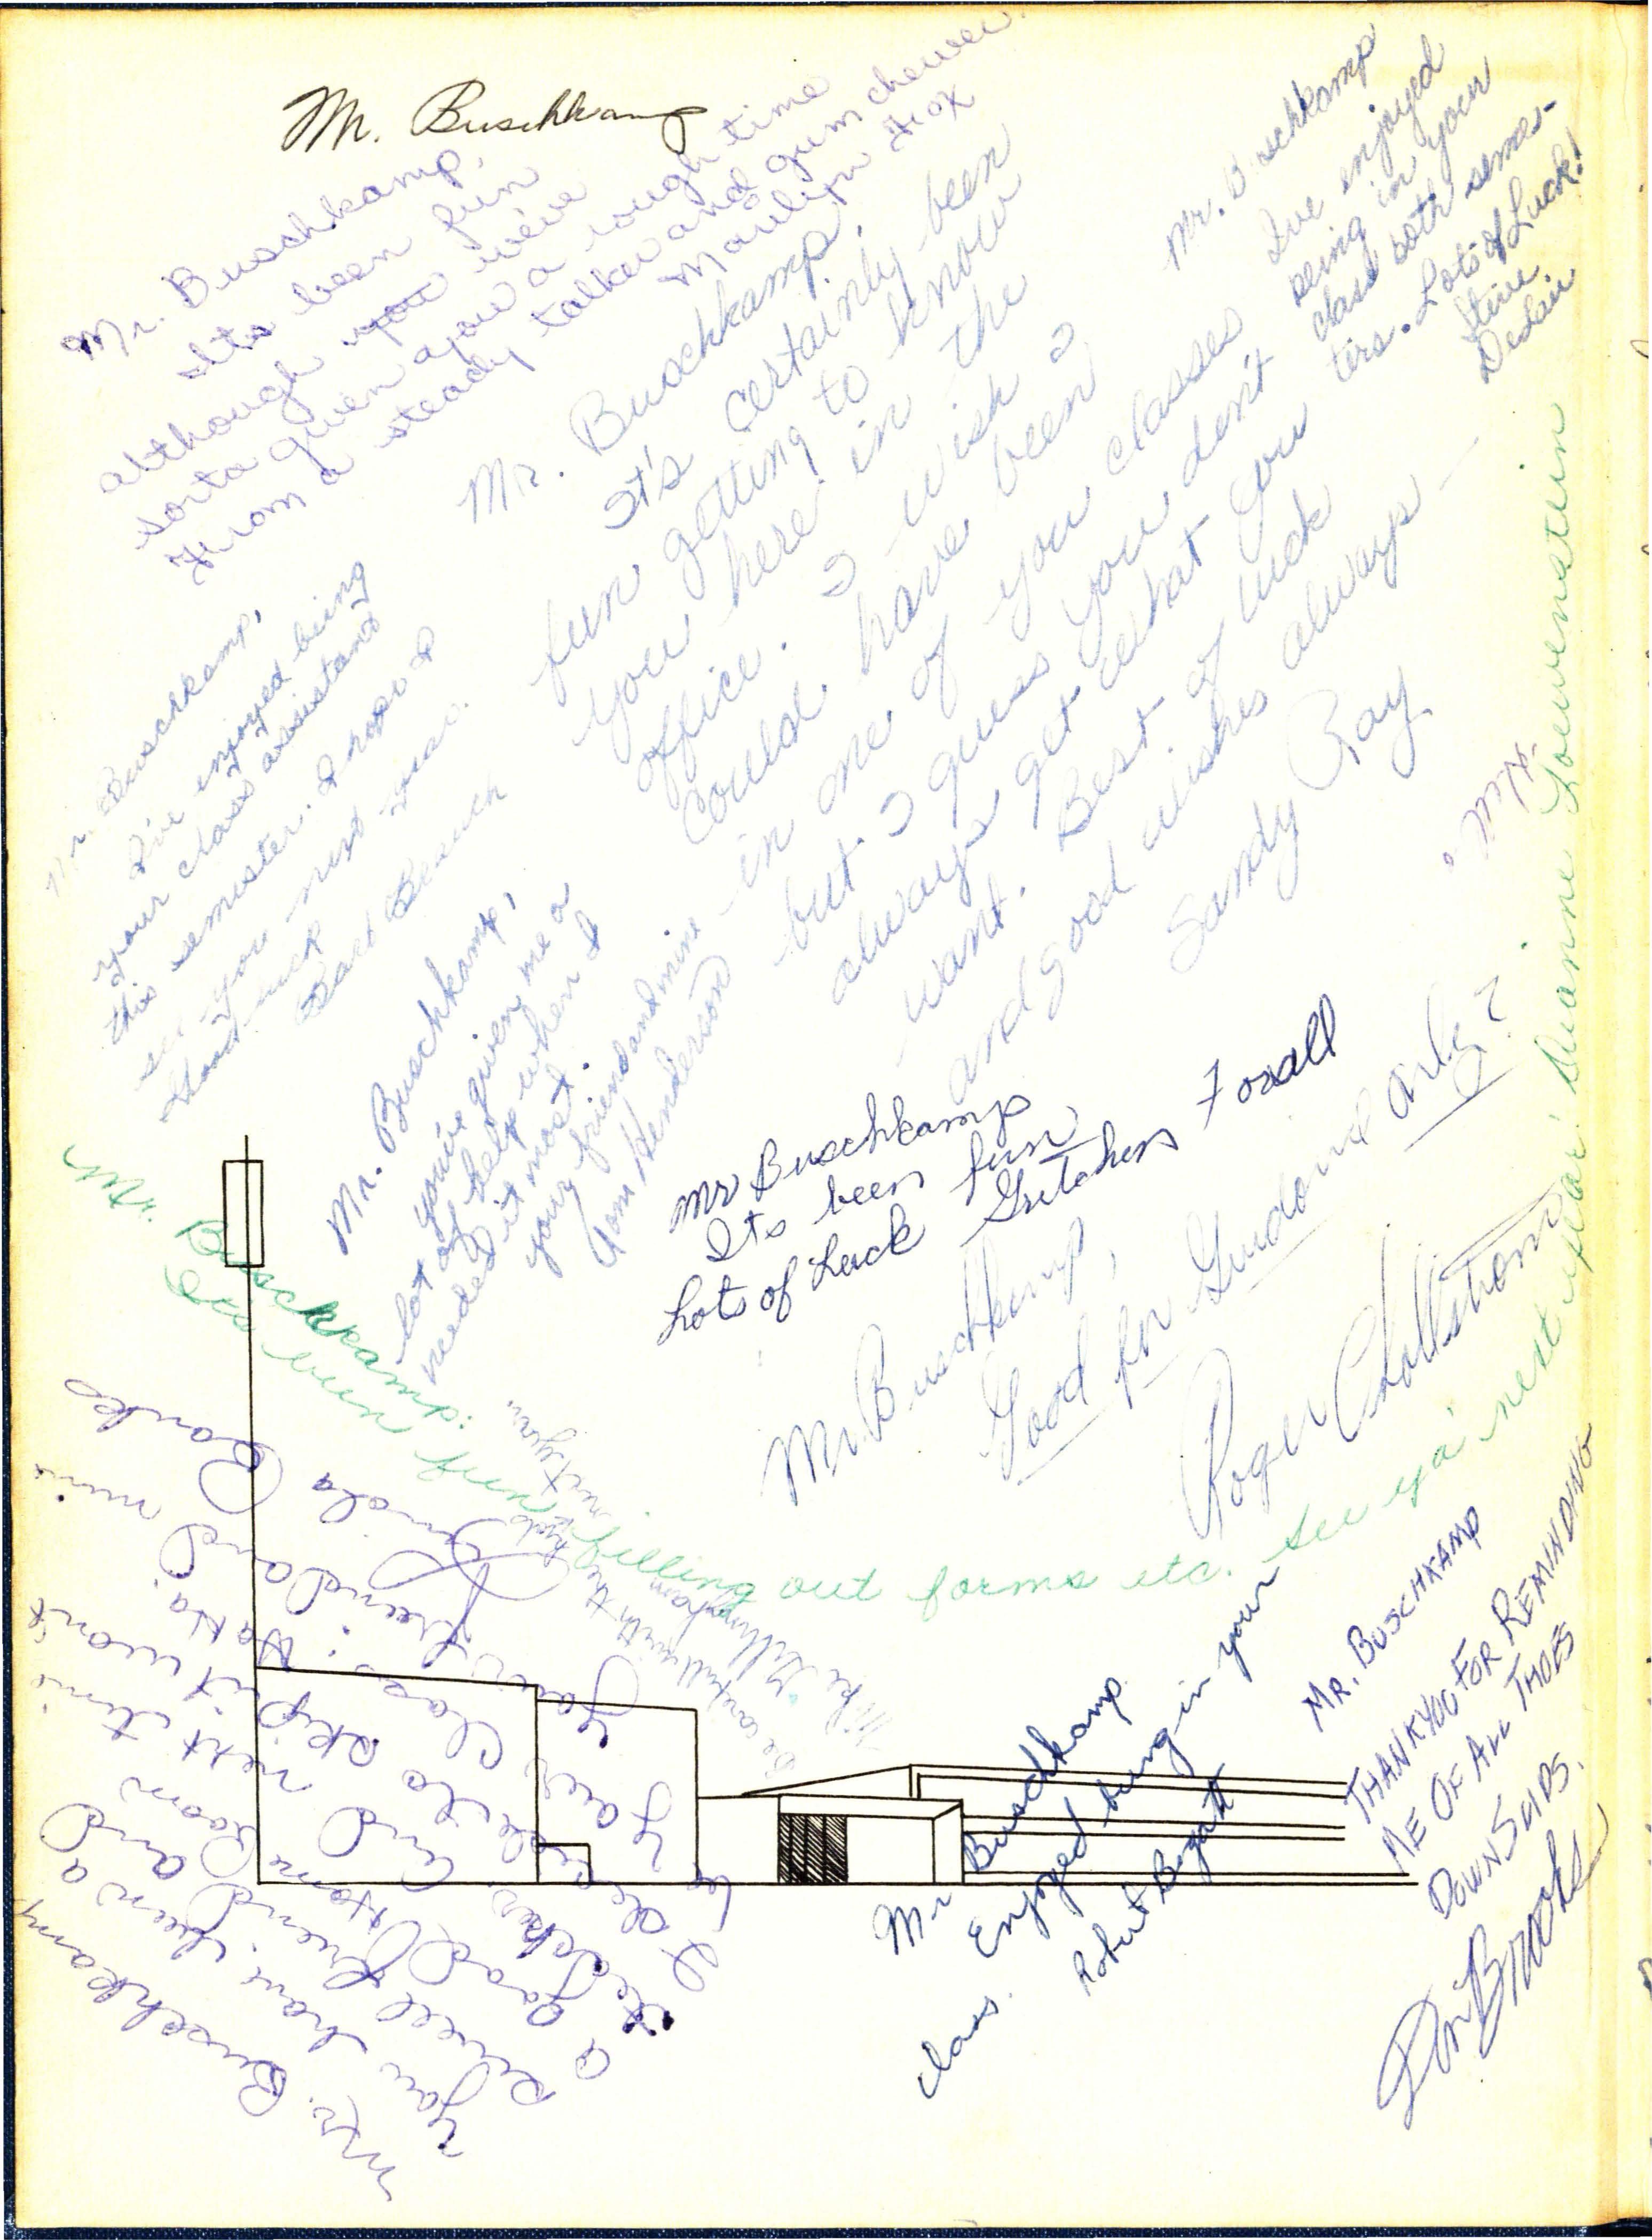 Mr. Buschkamp
Mr. Buschkamp,
Its been fun
although you we've
sorta given you a rough time
From a steady talker and gum chewer.
Marilyn
Mr. Buschkamp
I've enjoyed
being in your
class both semes-
ters. Lots of Luck!
Steve
Mr. Buschkamp,
It's certainly been
fun getting to know
you here in the
office. I wish I
could have been
in one of you classes
but I guess you don't
always get what you
want. Best of luck
and good wishes always —
Sandy Ray
Mr. Buschkamp,
I've enjoyed being
your class assistant
this semester. I hope I
see you next year.
Good luck
Mr. Buschkamp,
you've given me a
lot of help when I
needed it most.
your friend and mine
Tom Henderson
Mr Buschkamp
Its been fun
Lots of Luck Gretchen Foxall
Mr. Buschkamp,
Good for
Roger
Mr. Buschkamp:
Its been fun filling out forms etc. See ya' next year! Deanne Loewenstein
be careful with the
next year.
Mike
Mr. Buschkamp
You have been a
Reneel friend and
a good Home Room
teacher. And next time
I decide to skip it won't
be your class. Ha Ha.
Your friend and mine
Linda Banks
Mr Buschkamp
Enjoyed being in your
class.
Robert Bogatt
MR. BUSCHKAMP
THANKYOU FOR REMINDING
ME OF ALL THOES
DOWN SLIDS.
Don Brooks